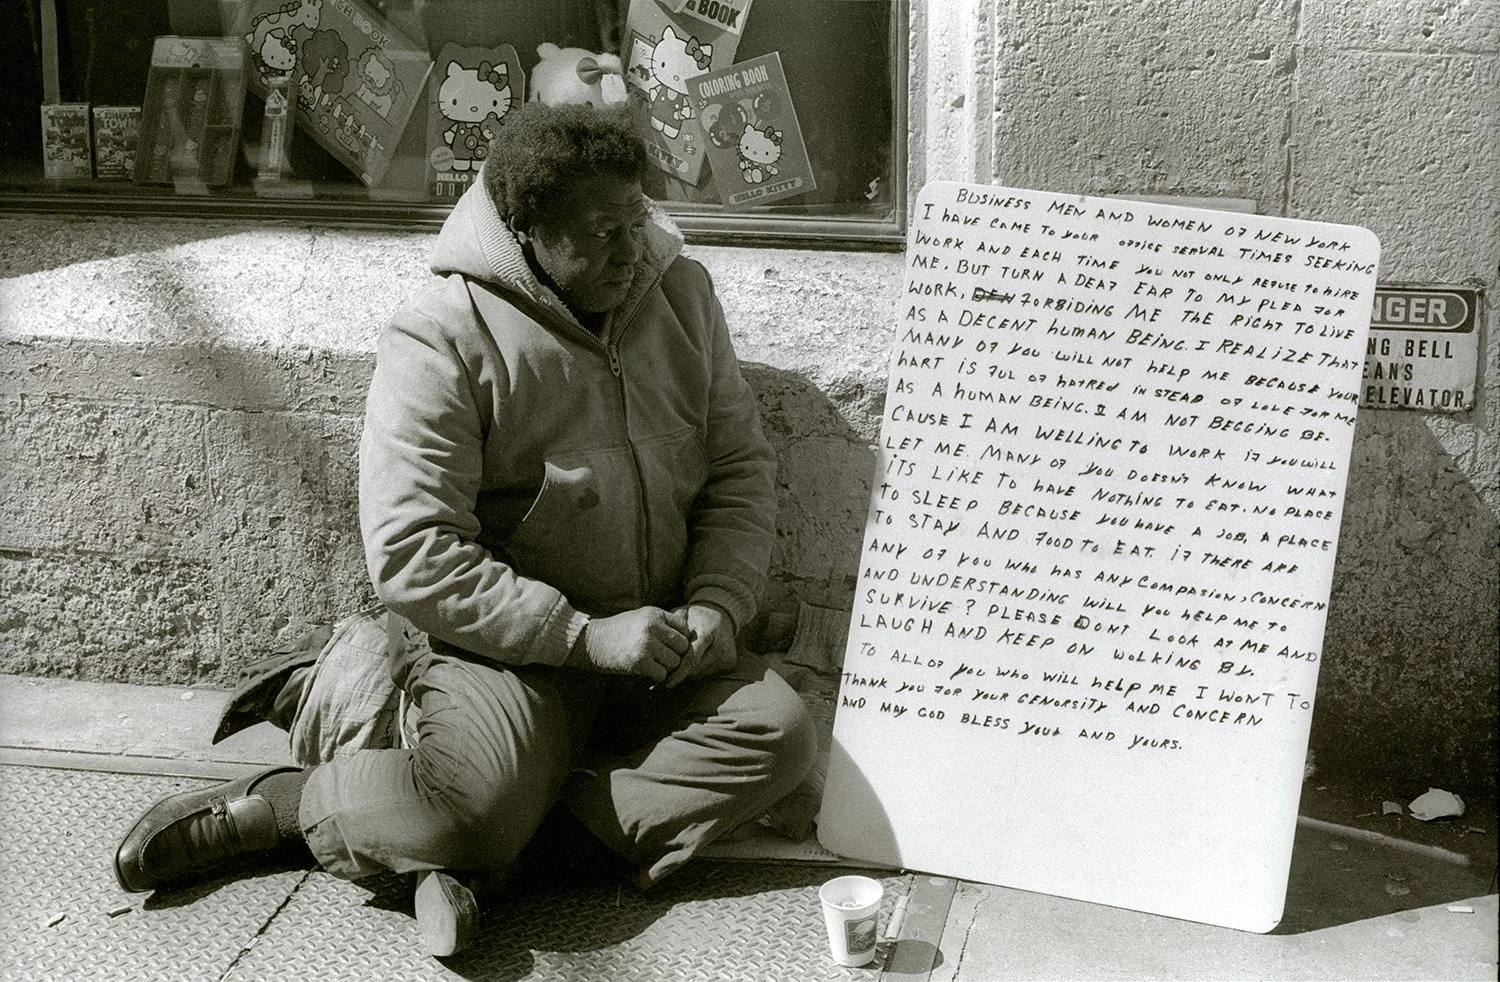 TCH BOOK
& BOOK
COLORING BOOK
HELLO KITTY
KITTY
HELLO
BUSINESS MEN AND WOMEN OF NEW YORK
I HAVE CAME TO YOUR OFFICE SERVAL TIMES SEEKING
WORK AND EACH TIME YOU NOT ONLY REFUSE TO HIRE
ME. BUT TURN A DEAF EAR TO MY PLEA FOR
WORK, FORBIDING ME THE RIGHT TO LIVE
AS A DECENT HUMAN BEING. I REALIZE THAT
MANY OF YOU WILL NOT HELP ME BECAUSE YOUR
HART IS FUL OF HATRED IN STEAD OF LOVE FOR ME
AS A HUMAN BEING. I AM NOT BEGGING BE-
CAUSE I AM WELLING TO WORK IF YOU WILL
LET ME. MANY OF YOU DOESN'T KNOW WHAT
ITS LIKE TO HAVE NOTHING TO EAT. NO PLACE
TO SLEEP BECAUSE YOU HAVE A JOB, A PLACE
TO STAY AND FOOD TO EAT. IF THERE ARE
ANY OF YOU WHO HAS ANY COMPASION, CONCERN
AND UNDERSTANDING WILL YOU HELP ME TO
SURVIVE? PLEASE DONT LOOK AT ME AND
LAUGH AND KEEP ON WOLKING BY.
TO ALL OF YOU WHO WILL HELP ME I WONT TO
THANK YOU FOR YOUR GENORSITY AND CONCERN
AND MAY GOD BLESS YOU AND YOURS.
NGER
NG BELL
EANS
ELEVATOR